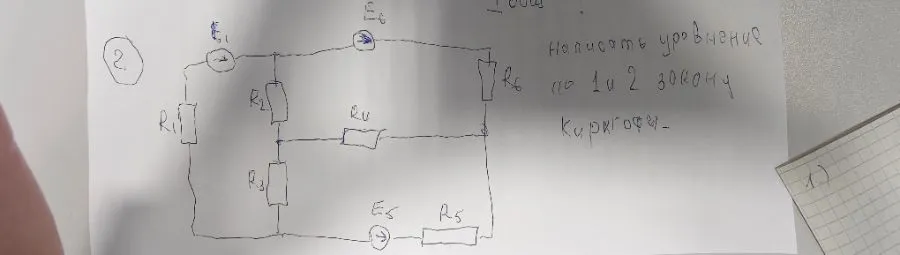 2.
E1
E6
R1
R2
R4
R6
R3
E5
R5
Написать уравнение
по 1 и 2 закону
Кирхгофа
1)